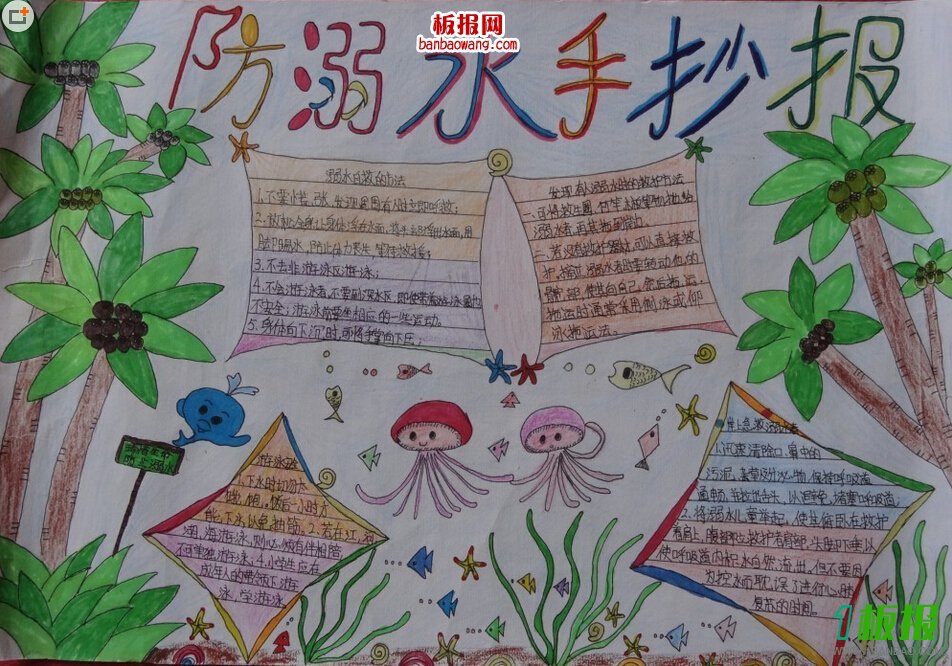 板报网
banbaowang.com
防溺水手抄报
溺水自救的方法
1.不要慌张,发现周围有人时立即呼救;
3.不去非游泳区游泳;
4.不会游泳者,不要到深水区,即使带着游泳圈也
不安全;游泳前要做相应的一些运动。
5.身体向下沉时,可将手掌向下压;
发现有人溺水时的救护方法
一、可将救生圈、竹竿、木板等物抛给
溺水者,再将其拖至岸边;
二、若没有救护器材,可以直接救
护,接近溺水者时要转动他的
髋部,使其背向自己然后拖运。
拖运时通常采用侧泳或仰
泳拖运法。
1.下水时切勿太
饿、饱。饭后一小时方
能下水,以免抽筋;2.若在江、河
湖、海游泳,则必须有伴相陪
不可单独游泳;4.小学生应在
成年人的带领下游
泳,学游泳
1.迅速清除口、鼻中的
污泥、杂草及分泌物,保持呼吸道
通畅,并拉出舌头,以避免堵塞呼吸道;
2.将溺水儿童举起,使其俯卧在救护
者肩上,腹部紧贴救护者肩部,头脚下垂,以
使呼吸道内积水自然流出,但不要因
为控水而耽误了进行心肺
复苏的时间。
板报